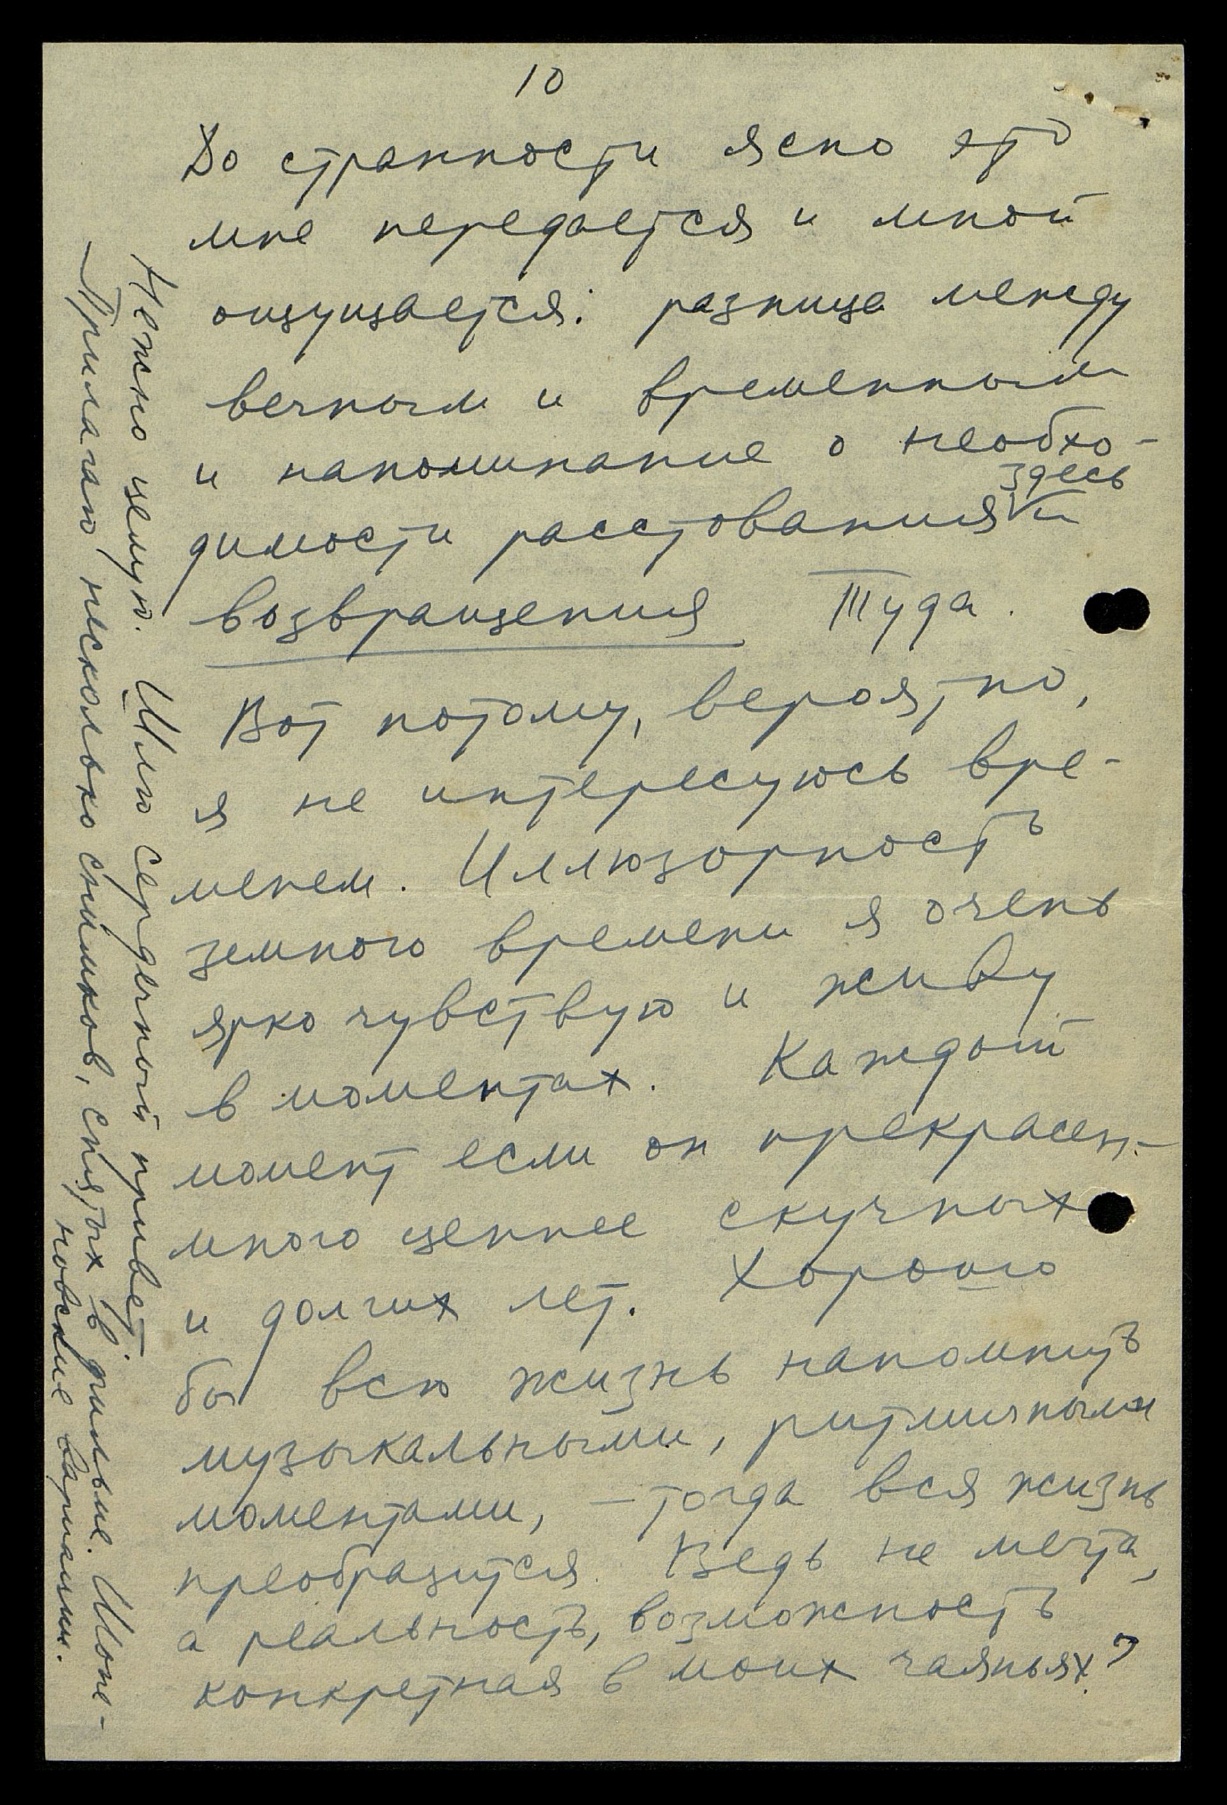 10
До странности ясно это
мне передается и мной
ощущается: разница между
вечным и временным
и напоминание о необхо-
здесь
димости расстования и
возвращения Туда.
Вот потому, вероятно,
я не интересуюсь вре-
менем. Иллюзорность
земного времени я очень
ярко чувствую и живу
в моментах. Каждый
момент если он прекрасен -
много ценнее скучных
и долгих лет. Хорошо
бы всю жизнь напомнить
музыкальными, ритмичными
моментами, – тогда вся жизнь
преобразится. Ведь не мечта,
а реальность, возможность
конкретная в моих чаяньях?
Нежно целую. Шлю сердечный привет.
Прилагаю несколько снимков, снятых в фильме. Шопе-
новские вариации.